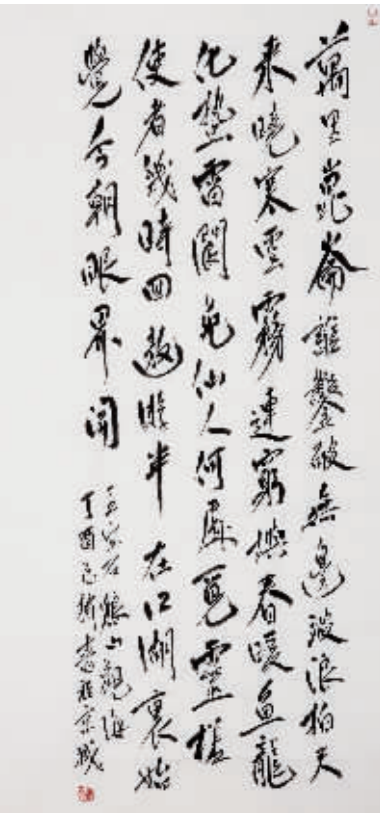 萬里崑崙誰鑿破無邊波浪拍天
來曉寒雲霧連窮嶼春暖鱼龍
化蟄雷閬苑仙人何處覓靈槎
使者幾時回遨遊半在江湖裏始
覺今朝眼界開
山觀海
丁酉書於京城